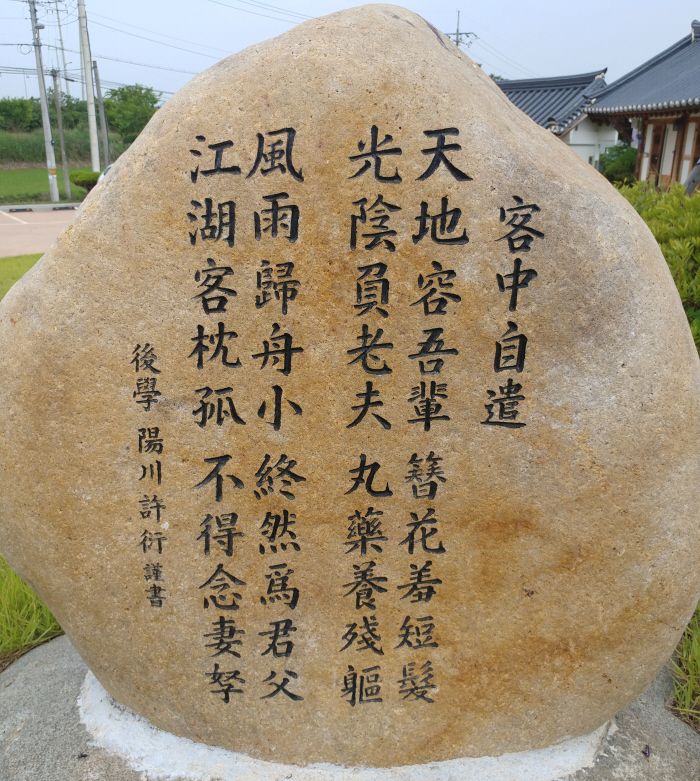 客中自遣
天地容吾輩 簪花羞短髮
光陰負老夫 丸藥養殘軀
風雨歸舟小 終然爲君父
江湖客枕孤 不得念妻孥
後學 陽川 許衍 謹書